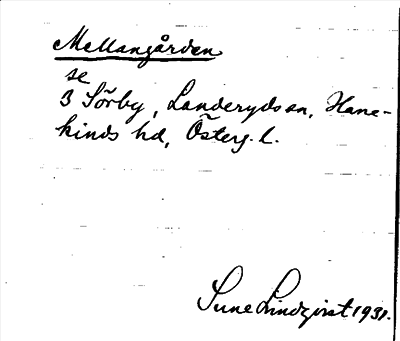 Mellangården
se
3 Sörby, Landeryds sn, Hane-
kinds hd, Österg. l.
Sune Lindqvist 1931.